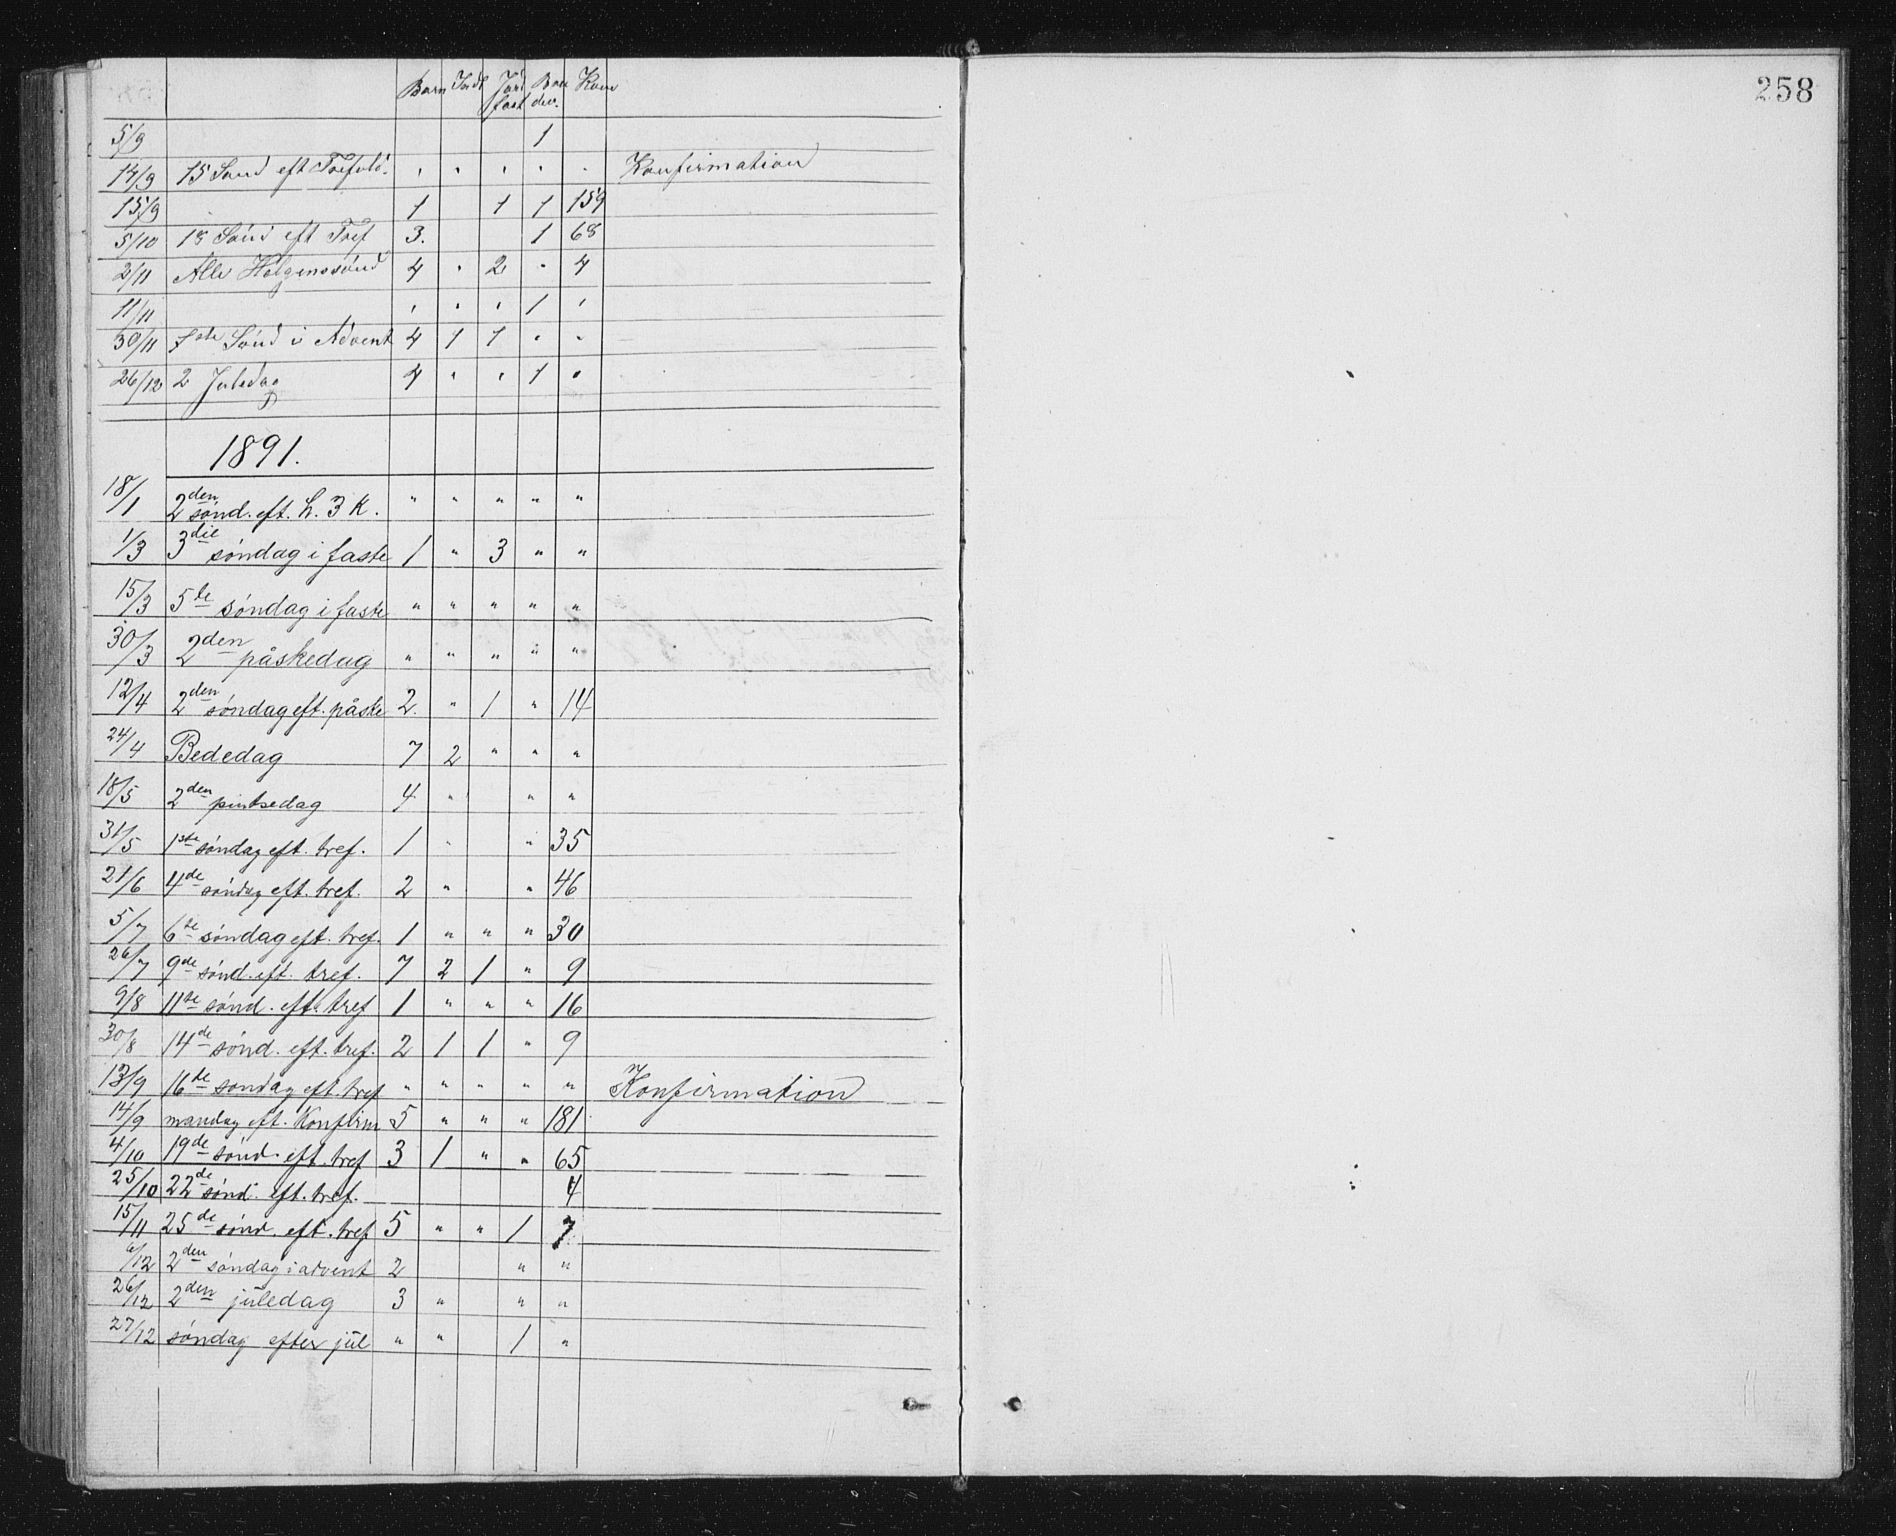 258
Barn Indl Jord fast Brudev. Kom
5/9 1
14/9 15 Sønd eft Trefold. " " " " " Konfirmation
15/9 1 1 1 159
5/10 18 Sønd eft Tref 3. 1 68
2/11 Alle Helgenssønd 4 " 2 " 4
11/11 " " " 1 "
30/11 1ste Sønd i Advent 4 1 1 " "
26/12 2 Juledag 4 " " 1 "
1891.
18/1 2den sønd. eft. h. 3 K. " " " " "
1/3 3die søndag i faste 1 " 3 " "
15/3 5te søndag i faste " " " " "
30/3 2den påskedag " " " " "
12/4 2den søndag eft. påske 2. " 1 " 14
24/4 Bededag 7 2 " " "
18/5 2den pintsedag 4 " " "
31/5 1ste søndag eft. tref. 1 " " 35
21/6 4de søndag eft. tref. 2 " " 46
5/7 6te søndag eft. tref. 1 " " " 30
26/7 9de sønd. eft. tref. 7 2 1 " 9
9/8 11te sønd. eft. tref 1 " " " 16
30/8 14de sønd. eft. tref. 2 1 1 " 9
13/9 16de søndag eft. tref " " " " " Konfirmation
14/9 mandag eft. Konfirm 5 " " " 181
4/10 19de sønd. eft. tref 3 1 " " 65
25/10 22de sønd. eft. tref. 4
15/11 25de sønd. eft. tref 5 " " 1 7
6/12 2den søndag i advent 2 " "
26/12 2den juledag 3 " " "
27/12 søndag efter jul " " 1 "